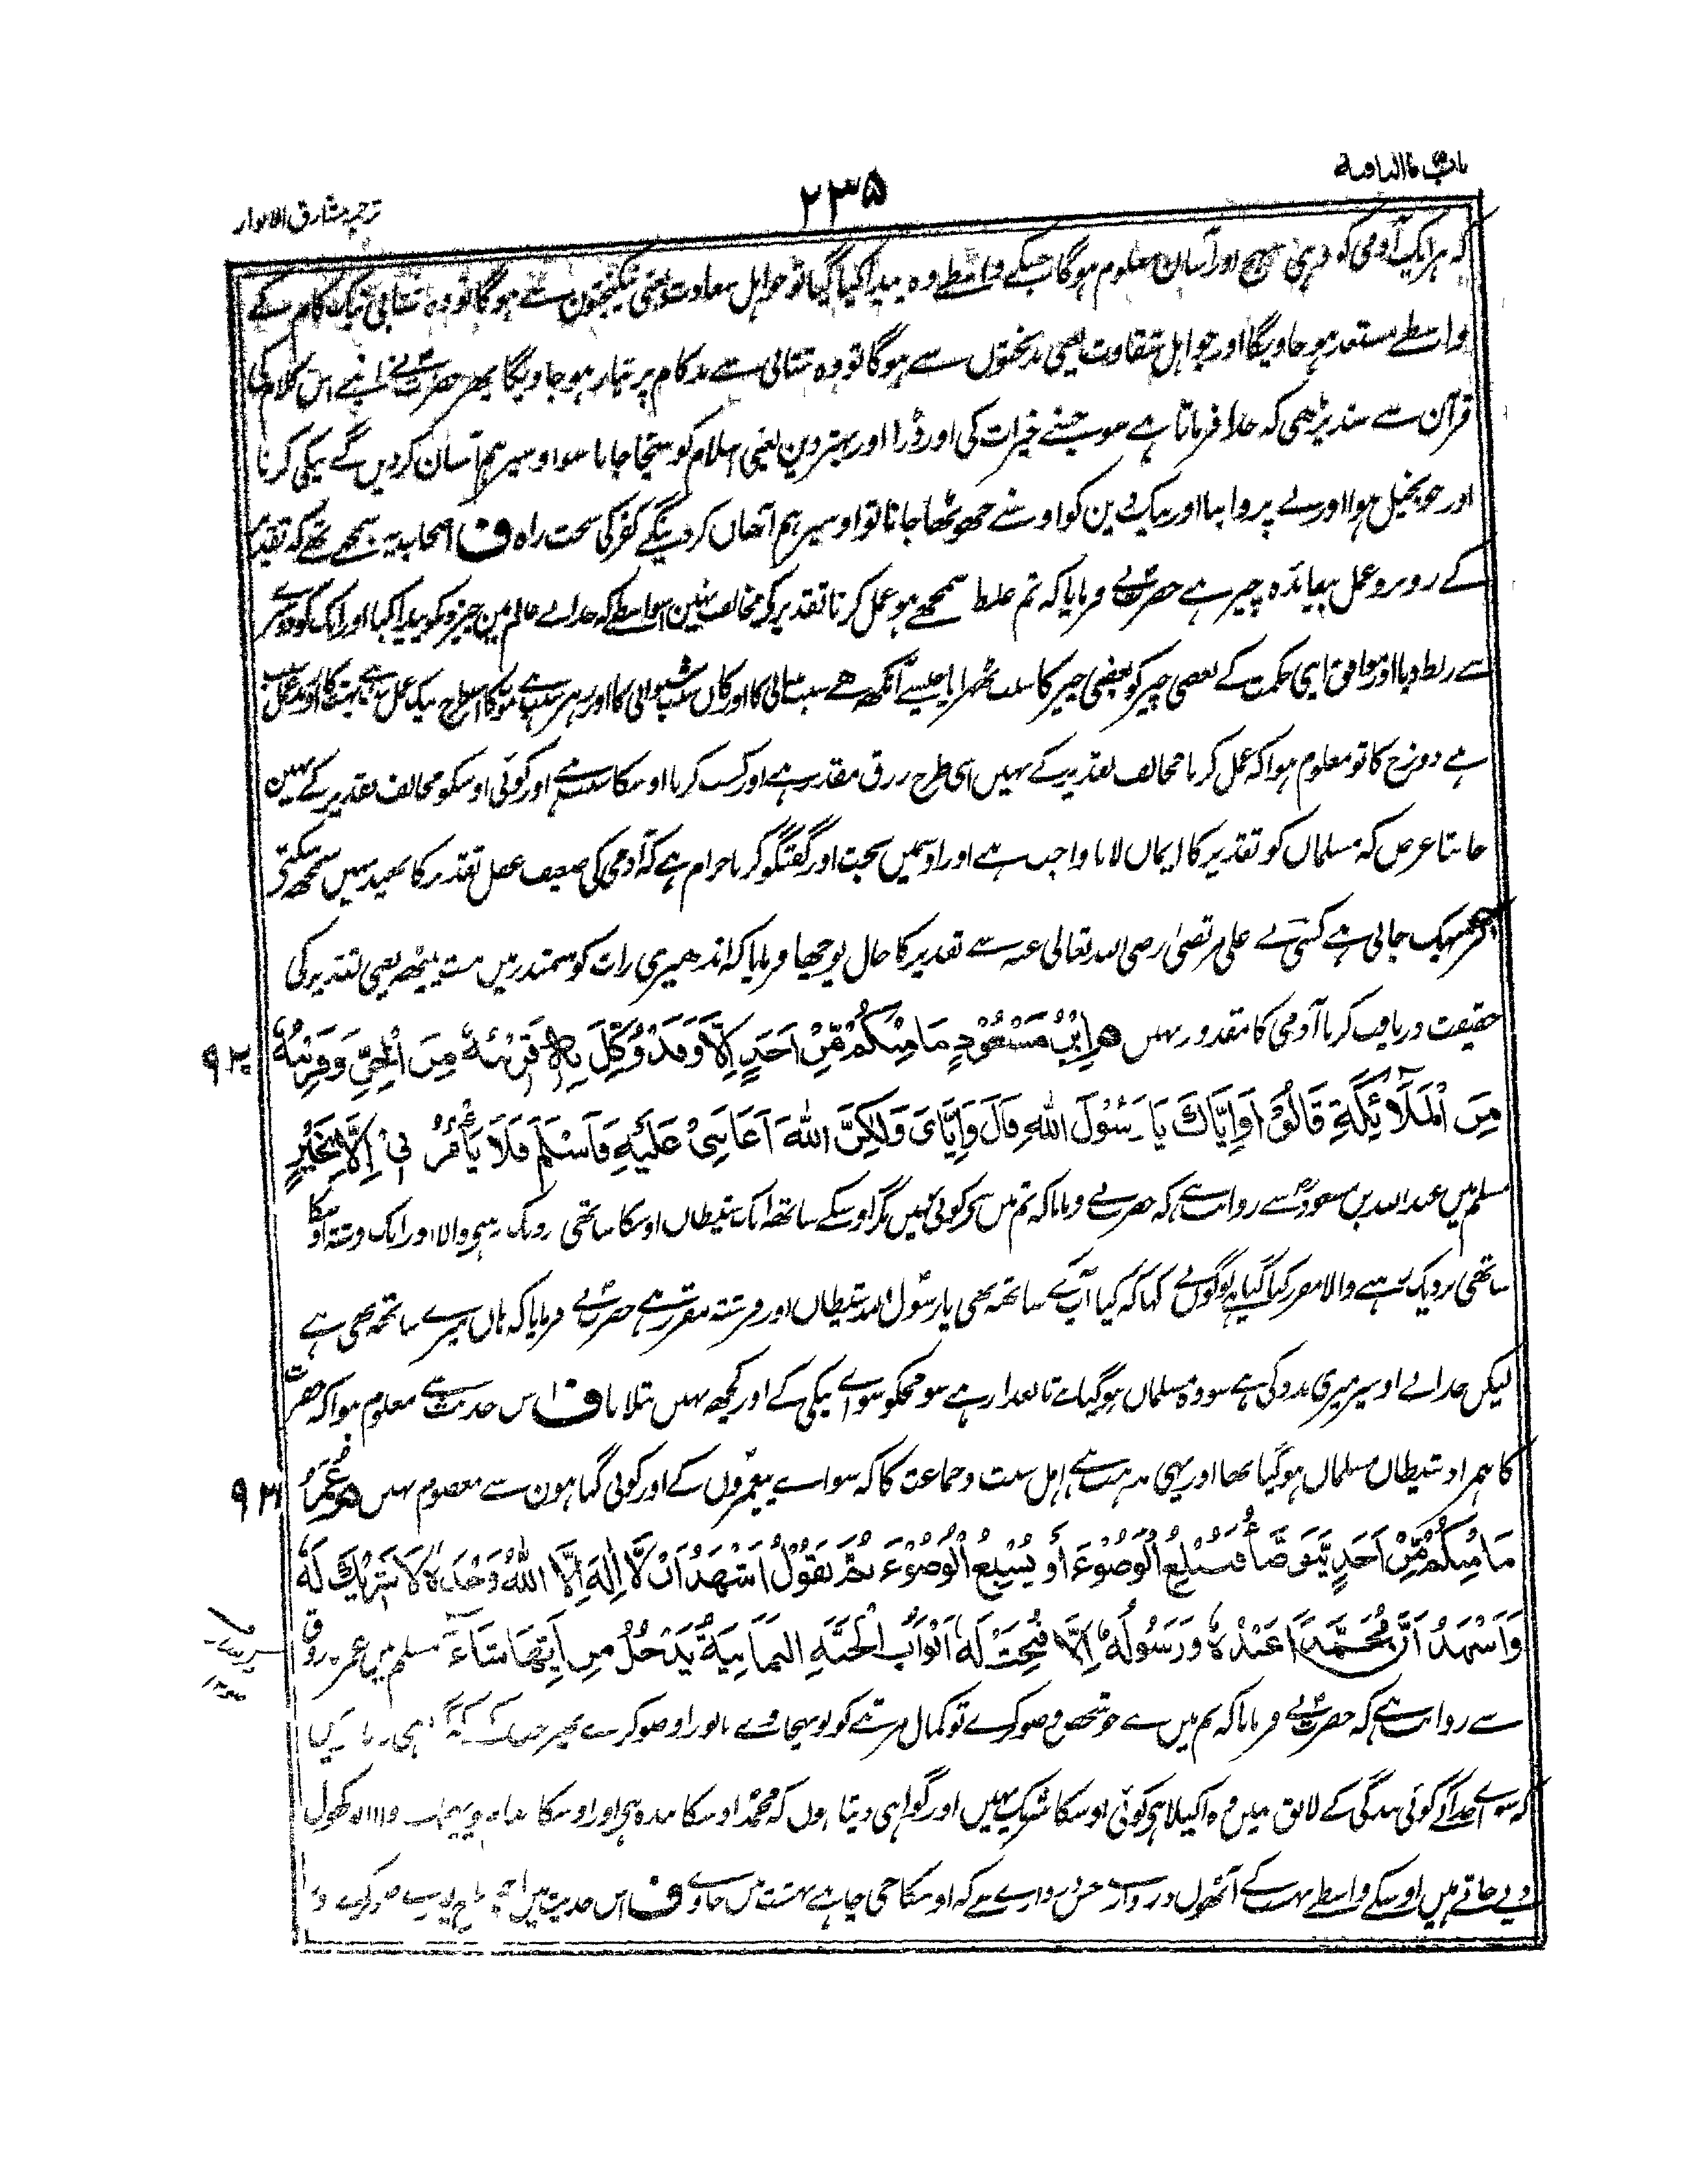 باب ما النافیة
۲۳۵
ترجمہ مشارق الانوار
کہ ہر ایک آدمی کو وہی سہج اور آسان معلوم ہوگا جسکے واسطے وہ پیدا کیا گیا تو جو اہل سعادت یعنی نیکبختون سے ہوگا تو وہ شتابی نیک کام کے
واسطے مستعد ہو جاویگا اور جو اہل شقاوت یعنی بدبختوں سے ہوگا تو وہ شتابی سے بدکام پر تیار ہو جاویگا پھر حضرت نے اپنے اس کلام کی
قرآن سے سند پڑھی کہ خدا فرماتا ہے سو جسنے خیرات کی اور ڈرا اور بہتر دین یعنی اسلام کو سچا جانا سو اوسپر ہم آسان کر دیں گے نیکی کرنا
اور جو بخیل ہوا اور بے پروا بنا اور نیک دین کو اوسنے جھوٹھا جانا تو اوسپر ہم آسان کر دینگے کفر کی سخت راہ ف اصحاب یہ سمجھے تھے کہ تقدیر
کے روبرو عمل بیفائدہ چیز ہے حضرت نے فرمایا کہ تم غلط سمجھے ہو عمل کرنا تقدیر کے مخالف نہین اسواسطے کہ خدا نے عالم مین چیزونکو پیدا کیا اور ایک کو دوسرے
سے ربط دیا اور موافق اپنی حکمت کے بعضی چیز کو بعضی چیز کا سبب ٹھہرایا جیسے آنکھ ہے سبب بینائی کا اور کان سبب شنوائی کا اور زہر سبب ہے موت کا اسی طرح نیک عمل سبب ہے بہشت کا اور بد عمل سبب
ہے دوزخ کا تو معلوم ہوا کہ عمل کرنا مخالف تقدیر کے نہیں اسی طرح رزق مقدر ہے اور کسب کرنا اوسکا سبب ہے اور کوئی اوسکو مخالف تقدیر کے نہین
جانتا غرض کہ مسلمان کو تقدیر کا ایمان لانا واجب ہے اور اوسمیں بحث اور گفتگو کرنا حرام ہے کہ آدمی کی ضعیف عقل تقدیر کا بھید نہیں سمجھ سکتی
بہک جاتی ہے کسی نے علی مرتضیٰ رضی اللہ تعالی عنہ سے تقدیر کا حال پوچھا فرمایا کہ اندھیری رات کو سمندر میں مت پیٹھ یعنی تقدیر کی
حقیقت دریافت کرنا آدمی کا مقدور نہیں ھ اِبْنُ مَسْعُوْدٍ مَا مِنْكُمْ مِّنْ اَحَدٍ اِلَّا وَقَدْ وُكِّلَ بِهٖ قَرِيْنُهٗ مِنَ الْجِنِّ وَقَرِيْنُهٗ
۹۲
مِنَ الْمَلَآئِكَةِ قَالُوْا وَاِيَّاكَ يَا رَسُوْلَ اللهِ قَالَ وَاِيَّايَ وَلٰكِنَّ اللهَ اَعَانَنِىْ عَلَيْهِ فَاَسْلَمَ فَلَا يَأْمُرُنِىْ اِلَّا بِخَيْرٍ
مسلم میں عبد اللہ بن مسعود سے روایت ہے کہ حضرت نے فرمایا کہ تم میں سے کوئی نہیں مگر اوسکے ساتھ ایک شیطان اوسکا ساتھی نزدیک رہنے والا اور ایک فرشتہ اوسکا
ساتھی نزدیک رہنے والا مقرر کیا گیا ہے لوگوں نے کہا کہ کیا آپ کے ساتھ بھی یا رسول اللہ شیطان اور فرشتہ مقرر ہے حضرت نے فرمایا کہ ہاں میرے ساتھ بھی ہے
لیکن خدا نے اوسپر میری مدد کی ہے سو وہ مسلمان ہو گیا ہے تابعدار ہے سو مجکو سواے نیکی کے اور کچھ نہیں بتلاتا ف اس حدیث سے معلوم ہوا کہ حضرت
کا ہمزاد شیطان مسلمان ہو گیا تھا اور یہی مذہب ہے اہل سنت و جماعت کا کہ سواے پیغمبروں کے اور کوئی گناہون سے معصوم نہیں ھ عُمَرُ
۹۳
مَا مِنْكُمْ مِّنْ اَحَدٍ يَّتَوَضَّأُ فَيُبْلِغُ الْوُضُوْءَ اَوْ يُسْبِغُ الْوُضُوْءَ ثُمَّ يَقُوْلُ اَشْهَدُ اَنْ لَّا اِلٰهَ اِلَّا اللهُ وَحْدَهٗ لَا شَرِيْكَ لَهٗ
وَاَشْهَدُ اَنَّ مُحَمَّدًا عَبْدُهٗ وَرَسُوْلُهٗ اِلَّا فُتِحَتْ لَهٗ اَبْوَابُ الْجَنَّةِ الثَّمَانِيَةُ يَدْخُلُ مِنْ اَيِّهَا شَاءَ مسلم میں عمر فاروق
سے روایت ہے کہ حضرت نے فرمایا کہ تم میں سے جو شخص وضو کرے تو کمال مرتبے کو پہنچاوے یا پورا وضو کرے پھر
کہ سواے خدا کے کوئی بندگی کے لائق نہیں وہ اکیلا ہی کوئی اوسکا شریک نہیں اور گواہی دیتا ہوں کہ محمد اوسکا بندہ ہی اور اوسکا کھول
دیے جاتے ہیں اوسکے واسطے بہشت کے آٹھوں دروازے جس دروازے سے کہ اوسکا جی چاہے بہشت میں جاوے ف اس حدیث میں